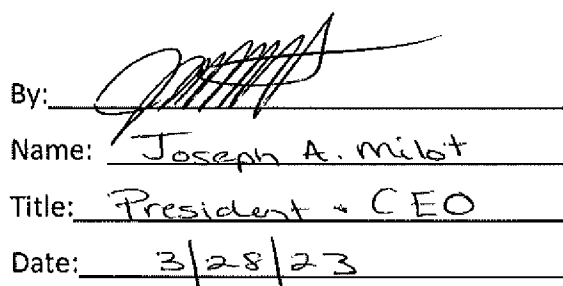 By:
Name: Joseph A. Milot
Title: President + CEO
Date: 3/28/23